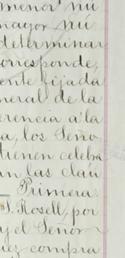 menor nú
mayor nú
determinar
corresponde,
ente fijada
neral de la
erencia a la
a, los Seño
tienen celebra
an las clau
Primera.
J. Rosell, por
y el Señor
uez compra